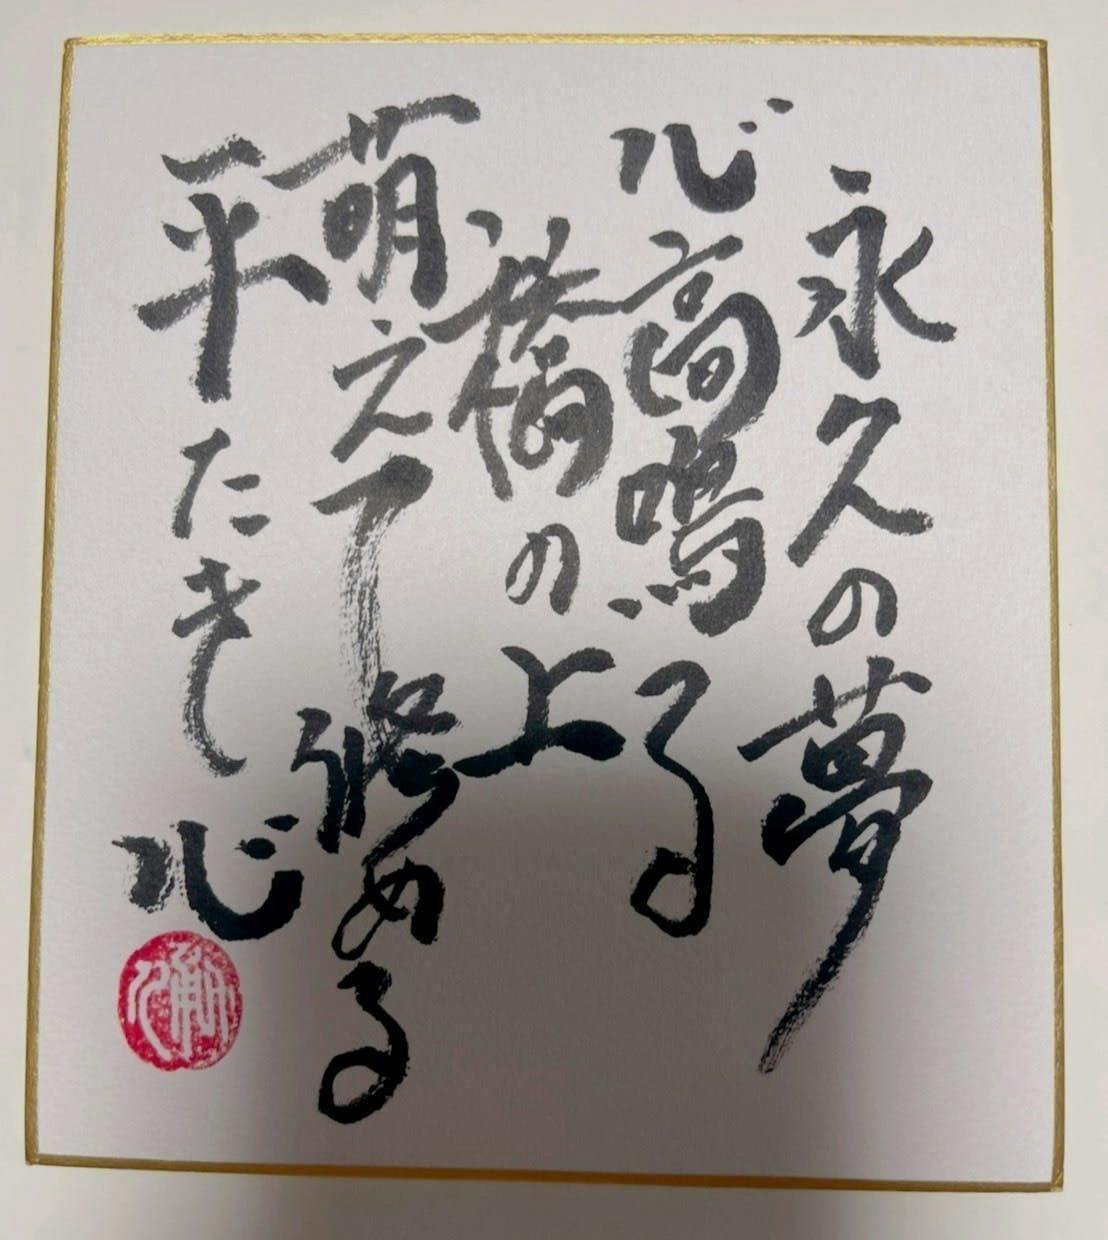 永久の夢
心高鳴る
橋の上
萌えて修める
平たき心